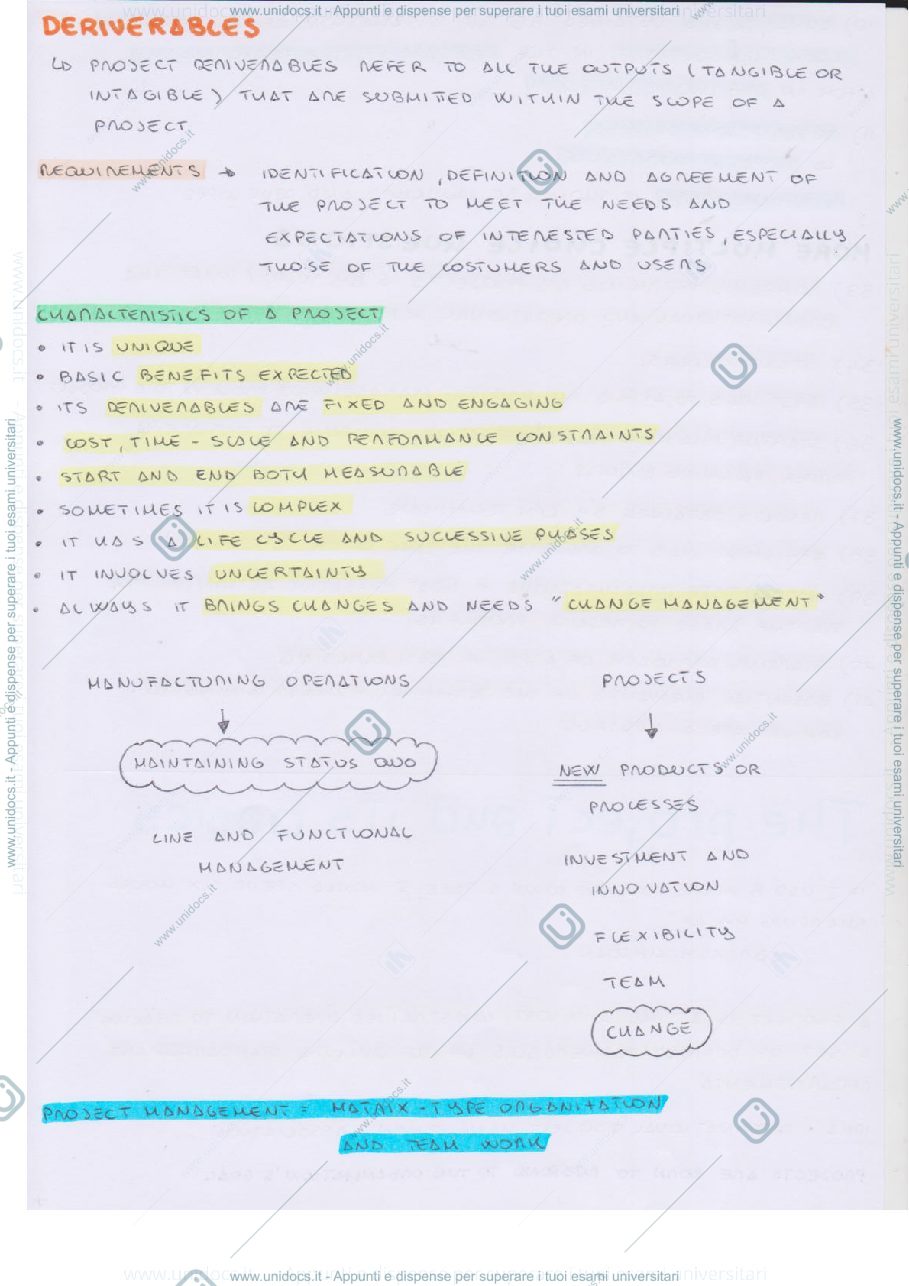 www.unidocs.it - Appunti e dispense per superare i tuoi esami universitari
DERIVERABLES
↳ PROJECT DERIVERABLES REFER TO ALL THE OUTPUTS (TANGIBLE OR
INTAGIBLE) THAT ARE SUBMITTED WITHIN THE SCOPE OF A
PROJECT
REQUIREMENTS → IDENTIFICATION, DEFINITION AND AGREEMENT OF
THE PROJECT TO MEET THE NEEDS AND
EXPECTATIONS OF INTERESTED PARTIES, ESPECIALLY
THOSE OF THE COSTUMERS AND USERS
CHARACTERISTICS OF A PROJECT
• IT IS UNIQUE
• BASIC BENEFITS EXPECTED
• ITS DERIVERABLES ARE FIXED AND ENGAGING
• COST, TIME - SCALE AND PERFORMANCE CONSTRAINTS
• START AND END BOTH MEASURABLE
• SOMETIMES IT IS COMPLEX
• IT HAS A LIFE CYCLE AND SUCCESSIVE PHASES
• IT INVOLVES UNCERTAINTY
• ALWAYS IT BRINGS CHANGES AND NEEDS "CHANGE MANAGEMENT"
MANUFACTURING OPERATIONS
MAINTAINING STATUS QUO
LINE AND FUNCTIONAL
MANAGEMENT
PROJECTS
NEW PRODUCTS OR
PROCESSES
INVESTMENT AND
INNOVATION
FLEXIBILITY
TEAM
CHANGE
PROJECT MANAGEMENT = MATRIX - TYPE ORGANIZATION
AND TEAM WORK
www.unidocs.it - Appunti e dispense per superare i tuoi esami universitari
www.unidocs.it - Appunti e dispense per superare i tuoi esami universitari
www.unidocs.it - Appunti e dispense per superare i tuoi esami universitari
www.unidocs.it
www.unidocs.it
www.unidocs.it
www.unidocs.it
www.unidocs.it
www.unidocs.it